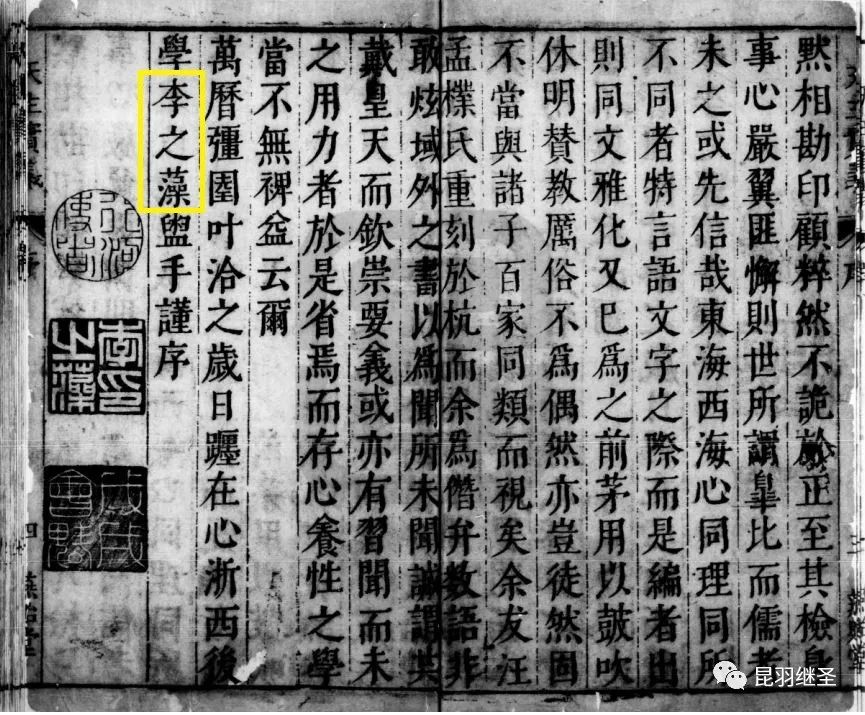 黙相勘印顧粹然不詭於正至其檢身
事心嚴翼匪懈則世所謂臯比而儒者
未之或先信哉東海西海心同理同所
不同者特言語文字之際而是編者出
則同文雅化又已爲之前茅用以鼓吹
休明贊教厲俗不爲偶然亦豈徒然固
不當與諸子百家同類而視矣余友汪
孟樸氏重刻於杭而余爲僭弁數語非
敢炫域外之書以爲聞所未聞誠謂共
戴皇天而欽崇要義或亦有習聞而未
之用力者於是省焉而存心養性之學
當不無裨益云爾
萬曆彊圉叶洽之歲日躔在心浙西後
學李之藻盥手謹序
李之藻印
天主實義
序
四
燕貽堂
昆羽继圣